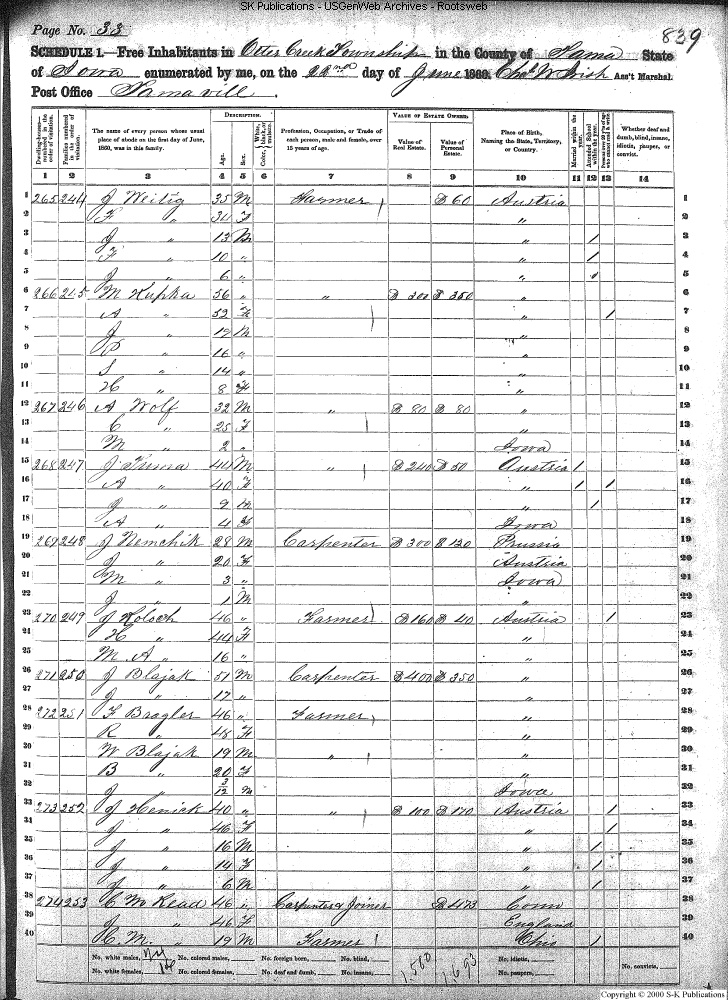 SK Publications - USGenWeb Archives - Rootsweb
Page No. 33
839
SCHEDULE 1.—Free Inhabitants in Otter Creek Township in the County of Tama State
of Iowa enumerated by me, on the 22nd day of June 1860. Chas W Irish Ass't Marshal.
Post Office Tamavill
Dwelling-houses—numbered in the order of visitation.
Families numbered in the order of visitation.
The name of every person whose usual place of abode on the first day of June, 1860, was in this family.
DESCRIPTION.
Age.
Sex.
Color, White, black, or mulatto.
Profession, Occupation, or Trade of each person, male and female, over 15 years of age.
VALUE OF ESTATE OWNED.
Value of Real Estate.
Value of Personal Estate.
Place of Birth, Naming the State, Territory, or Country.
Married within the year.
Attended School within the year.
Whether deaf and dumb, blind, insane, idiotic, pauper, or convict.
1 2 3 4 5 6 7 8 9 10 11 12 13 14
1 265 244 J Weitig 35 M Farmer $ 60 Austria 1
2 F " 34 F " 2
3 J " 13 M " / 3
4 F " 10 " " / 4
5 J " 6 " " / 5
6 266 245 M Kupka 56 " " $ 300 $ 350 " 6
7 A " 52 F " / 7
8 J " 19 M " 8
9 P " 16 " " 9
10 S " 14 " " 10
11 H " 8 F " 11
12 267 246 A Wolf 32 M " $ 80 $ 80 " 12
13 C " 25 F " 13
14 M " 2 " Iowa 14
15 268 247 J Tuma 44 M " $ 240 $ 50 Austria / 15
16 A " 40 F " / / 16
17 J " 9 M " / 17
18 A " 4 F Iowa 18
19 269 248 J Nemchik 28 M Carpenter $ 300 $ 130 Prussia 19
20 J " 20 F Austria 20
21 M " 3 " Iowa 21
22 J " 1 M " 22
23 270 249 J Kolsch 46 " Farmer $ 160 $ 40 Austria / 23
24 H " 44 F " 24
25 M A " 16 " " 25
26 271 250 J Blajak 51 M Carpenter $ 400 $ 350 " 26
27 J " 17 " " 27
28 272 251 F Bragler 46 " Farmer " 28
29 R " 48 F " 29
30 W Blajak 19 M " " 30
31 B " 20 F " 31
32 J " 3/12 M Iowa 32
33 273 252 J Henick 40 " " $ 100 $ 170 Austria / 33
34 J " 46 F " / 34
35 J " 16 M " / 35
36 J " 14 F " / 36
37 J " 6 M " / 37
38 274 253 C M Read 46 " Carpenter & Joiner $ 473 Conn 38
39 J " 46 F England 39
40 H. M. " 19 M Farmer Ohio / 40
No. white males, No. colored males, No. foreign born, No. blind,
No. white females, No. colored females, No. deaf and dumb, No. insane,
1,580
1,693
No. idiotic,
No. paupers,
No. convicts,
Copyright © 2000 S-K Publications